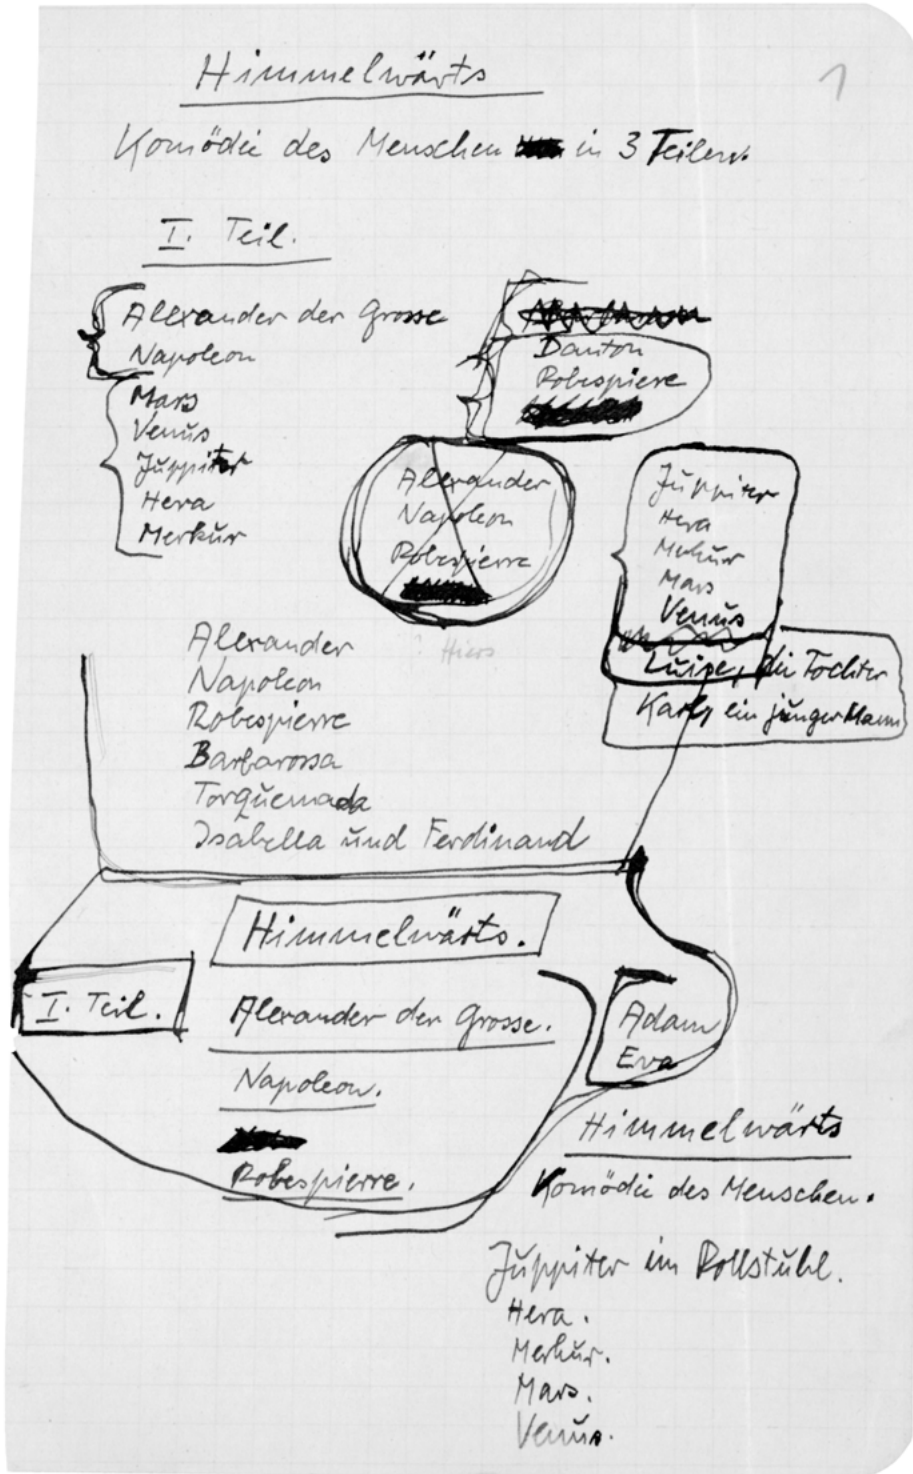 Himmelwärts
1
Komödie des Menschen in 3 Teilen.
I. Teil.
Alexander der Grosse
Napoleon
Mars
Venus
Juppiter
Hera
Merkur
Danton
Robespiere
Alexander
Napoleon
Robespierre
Juppiter
Hera
Merkur
Mars
Venus
Luise, die Tochter
Karl, ein junger Mann
Alexander
Napoleon
Robespierre
Barbarossa
Torquemada
Isabella und Ferdinand
Himmelwärts.
I. Teil.
Alexander der Grosse.
Napoleon.
Robespierre.
Adam
Eva
Himmelwärts
Komödie des Menschen.
Juppiter im Rollstuhl.
Hera.
Merkur.
Mars.
Venus.